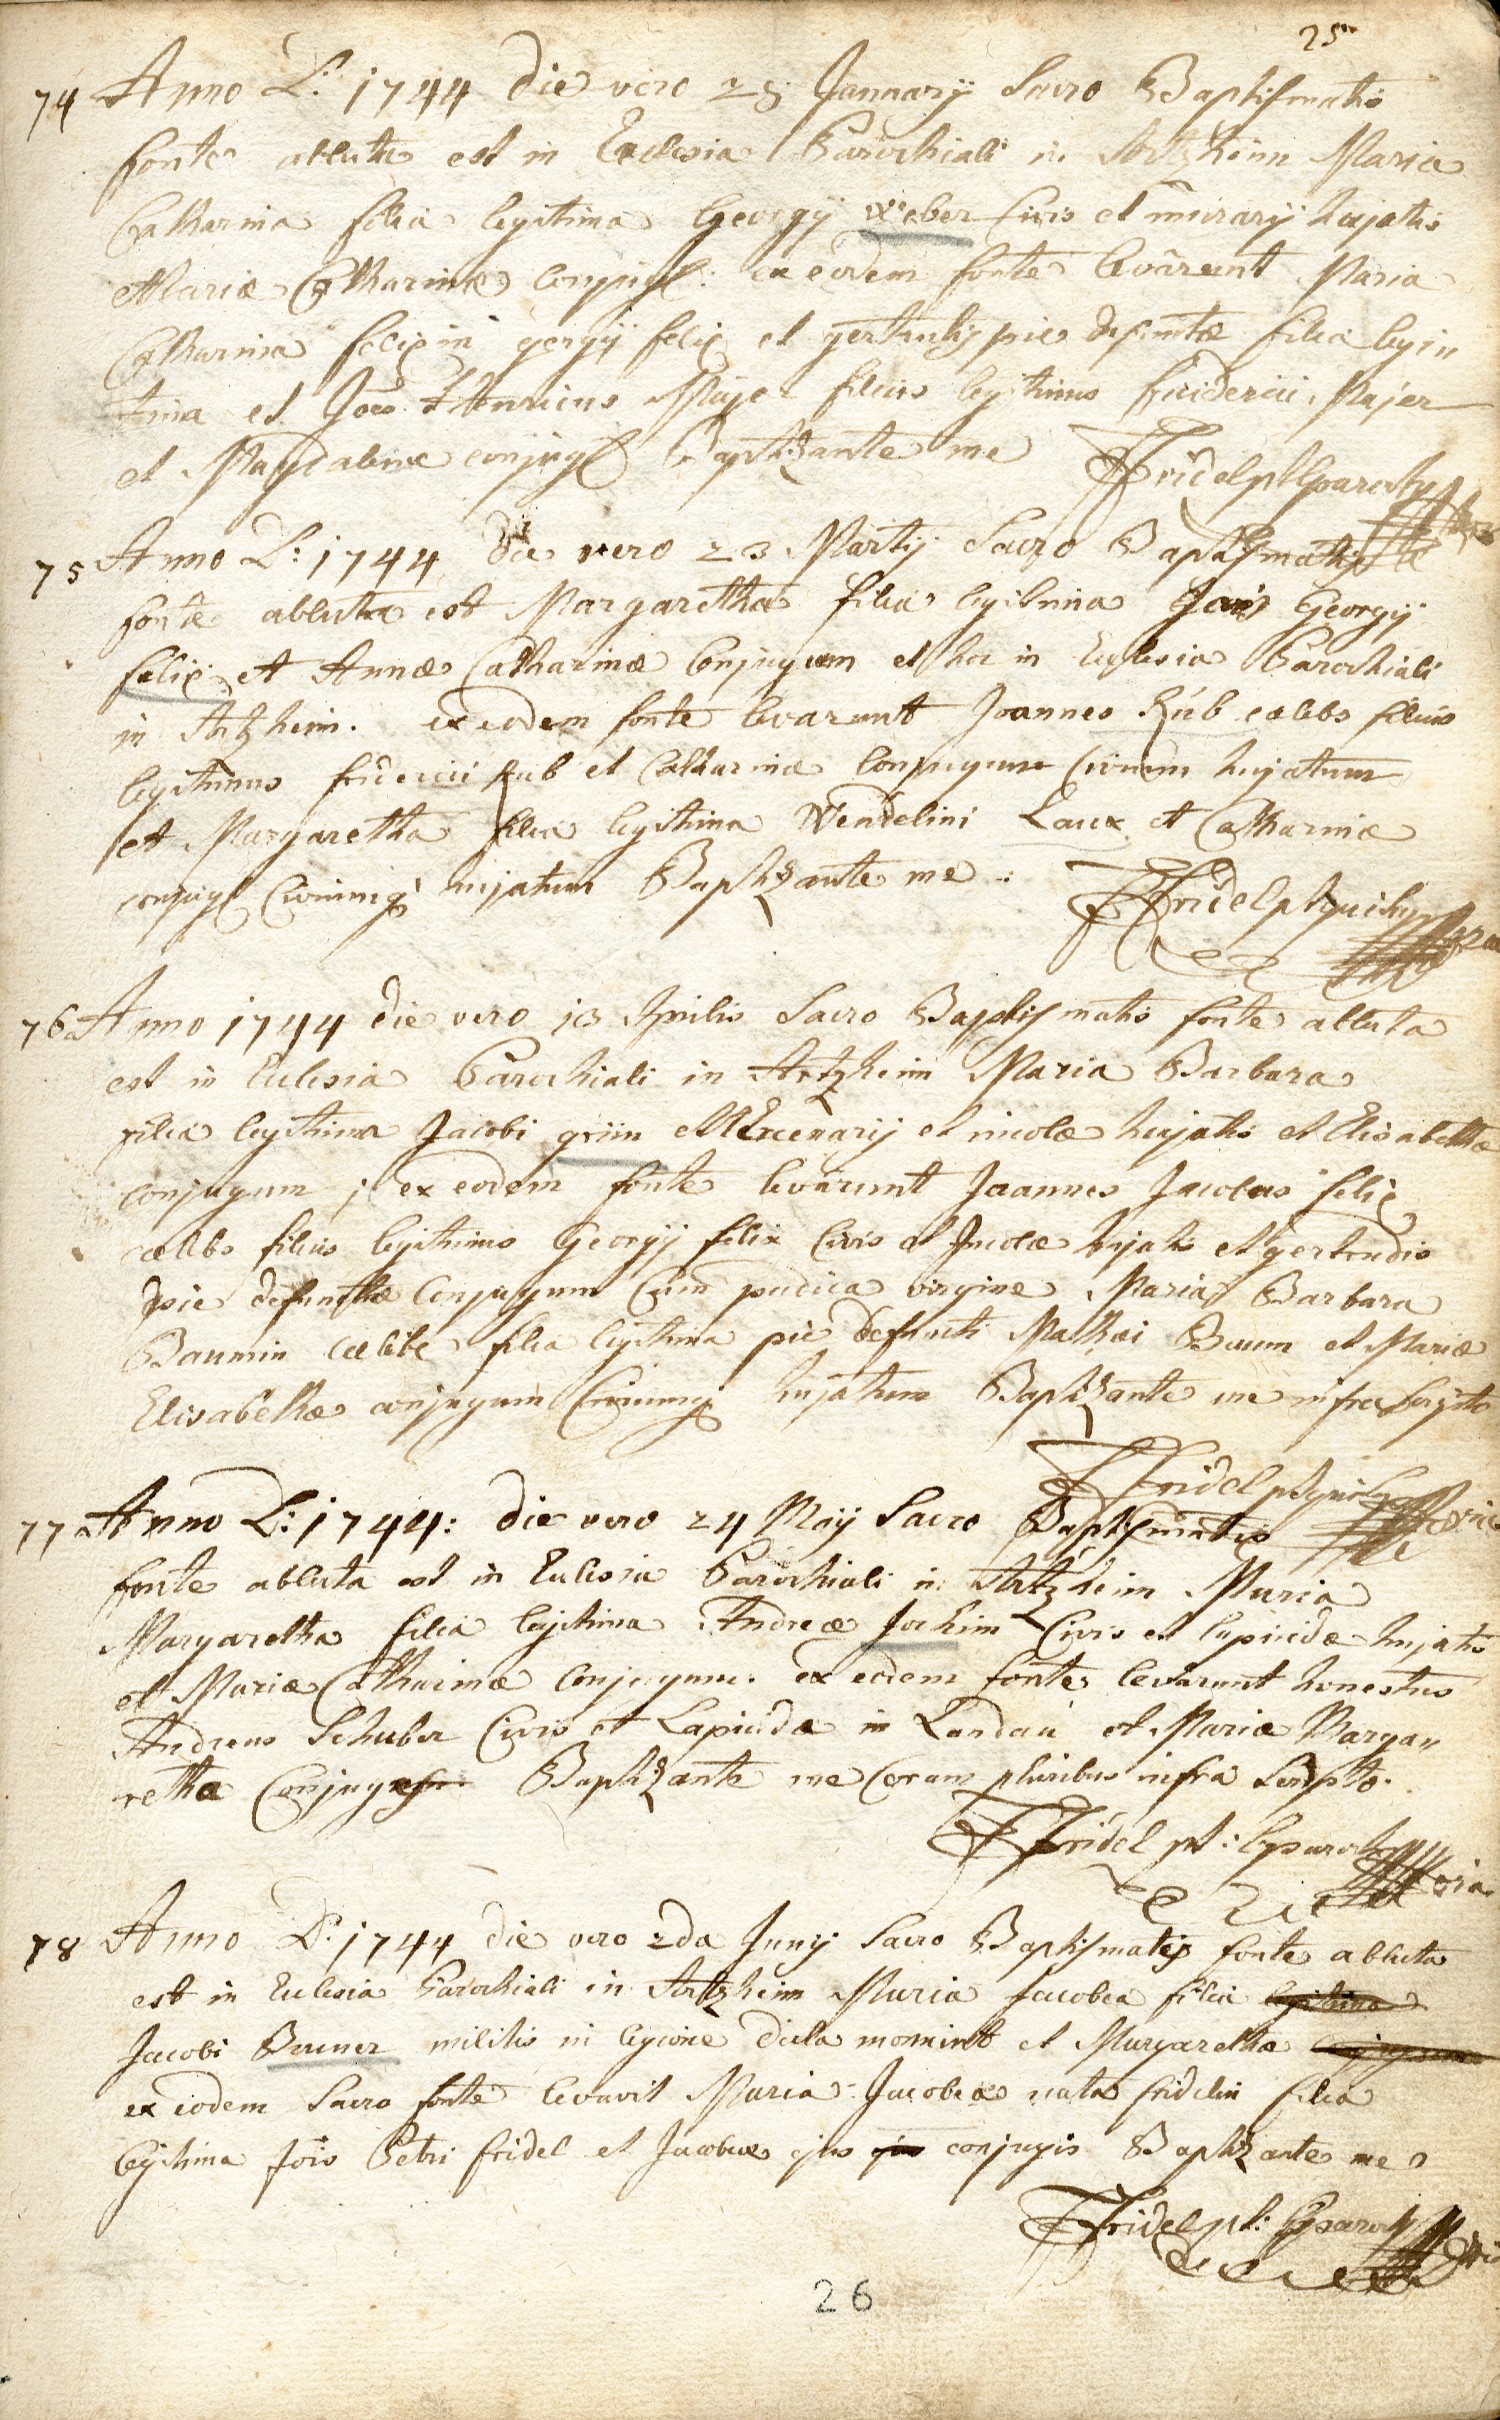 25
74 Anno D: 1744 die vero 25 Januarij Sacro Baptismatis
fonte abluta est in Ecclesia Parochiali in Artzheim Maria
Catharina filia legitima Georgij Weber Civis et murarij hujatis
et Mariæ Catharinæ conjug: ex eodem fonte levarunt Maria
Catharina felixin gergij felix et gertrudis pie defunctæ filia legi„
tima et Joes Henricus Majer filius legitimus friderici Majer
et Magdalenæ conjug Baptizante me
FFridel pt parochus
75 Anno D: 1744 die vero 23 Martij Sacro Baptismatis
fonte abluta est Margaretha filia legitima Jois Georgij
felix et Annæ Catharinæ Conjugum et hoc in Ecclesia Parochiali
in Artzheim. ex eodem fonte levarunt Joannes Rub cælebs filius
legitimus friderici Rub et Catharinæ Conjugum Civium hujatum
et Margaretha filia legitima Wendelini Laux et Catharinæ
conjug Civiumq hujatum Baptizante me :
FFridel pt
76 Anno 1744 die vero 13 Aprilis Sacro Baptismatis fonte abluta
est in Eclesia Parochiali in Artzheim Maria Barbara
filia legitima Jacobi griin Mercenarij et incolæ hujatis et Elisabethæ
conjugum ; ex eodem fonte levarunt Joannes Jacobus felix
cælebs filius legitimus Georgij felix Civis et Incolæ hujatis et gertrudis
pie defunctæ Conjugum Cum pudica virgine Maria Barbara
Baumin cælibe filia legitima pie defuncti Mathæi Baum et Mariæ
Elisabethæ conjugum Civiumq hujatum Baptizante me infra scripto
FFridel pt
77 Anno D: 1744: die vero 24 Maij Sacro Baptismatis
fonte abluta est in Eclesia Parochiali in Artzheim Maria
Margaretha filia legitima Andreæ Jochim Civis et lapicidæ hujatis
et Mariæ Catharinæ Conjugum. ex eodem fonte levarunt honestus
Andreas Schuber Civis et Lapicida in Landau et Maria Marga„
retha Conjuges Baptizante me Coram pluribus infra Scripto.
FFridel pt: parochus
78 Anno D: 1744 die vero 2da Junij Sacro Baptismatis fonte abluta
est in Eclesia Parochiali in Artzheim Maria Jacobea filia legitima
Jacobi Bruner militis in legione dicta et Margaretha conjugum
ex eodem Sacro fonte levavit Maria Jacobæa nata fridelin filia
legitima Jois Petri fridel et Jacobeæ ejus conjugis Baptizante me
FFridel pt: parochus
26